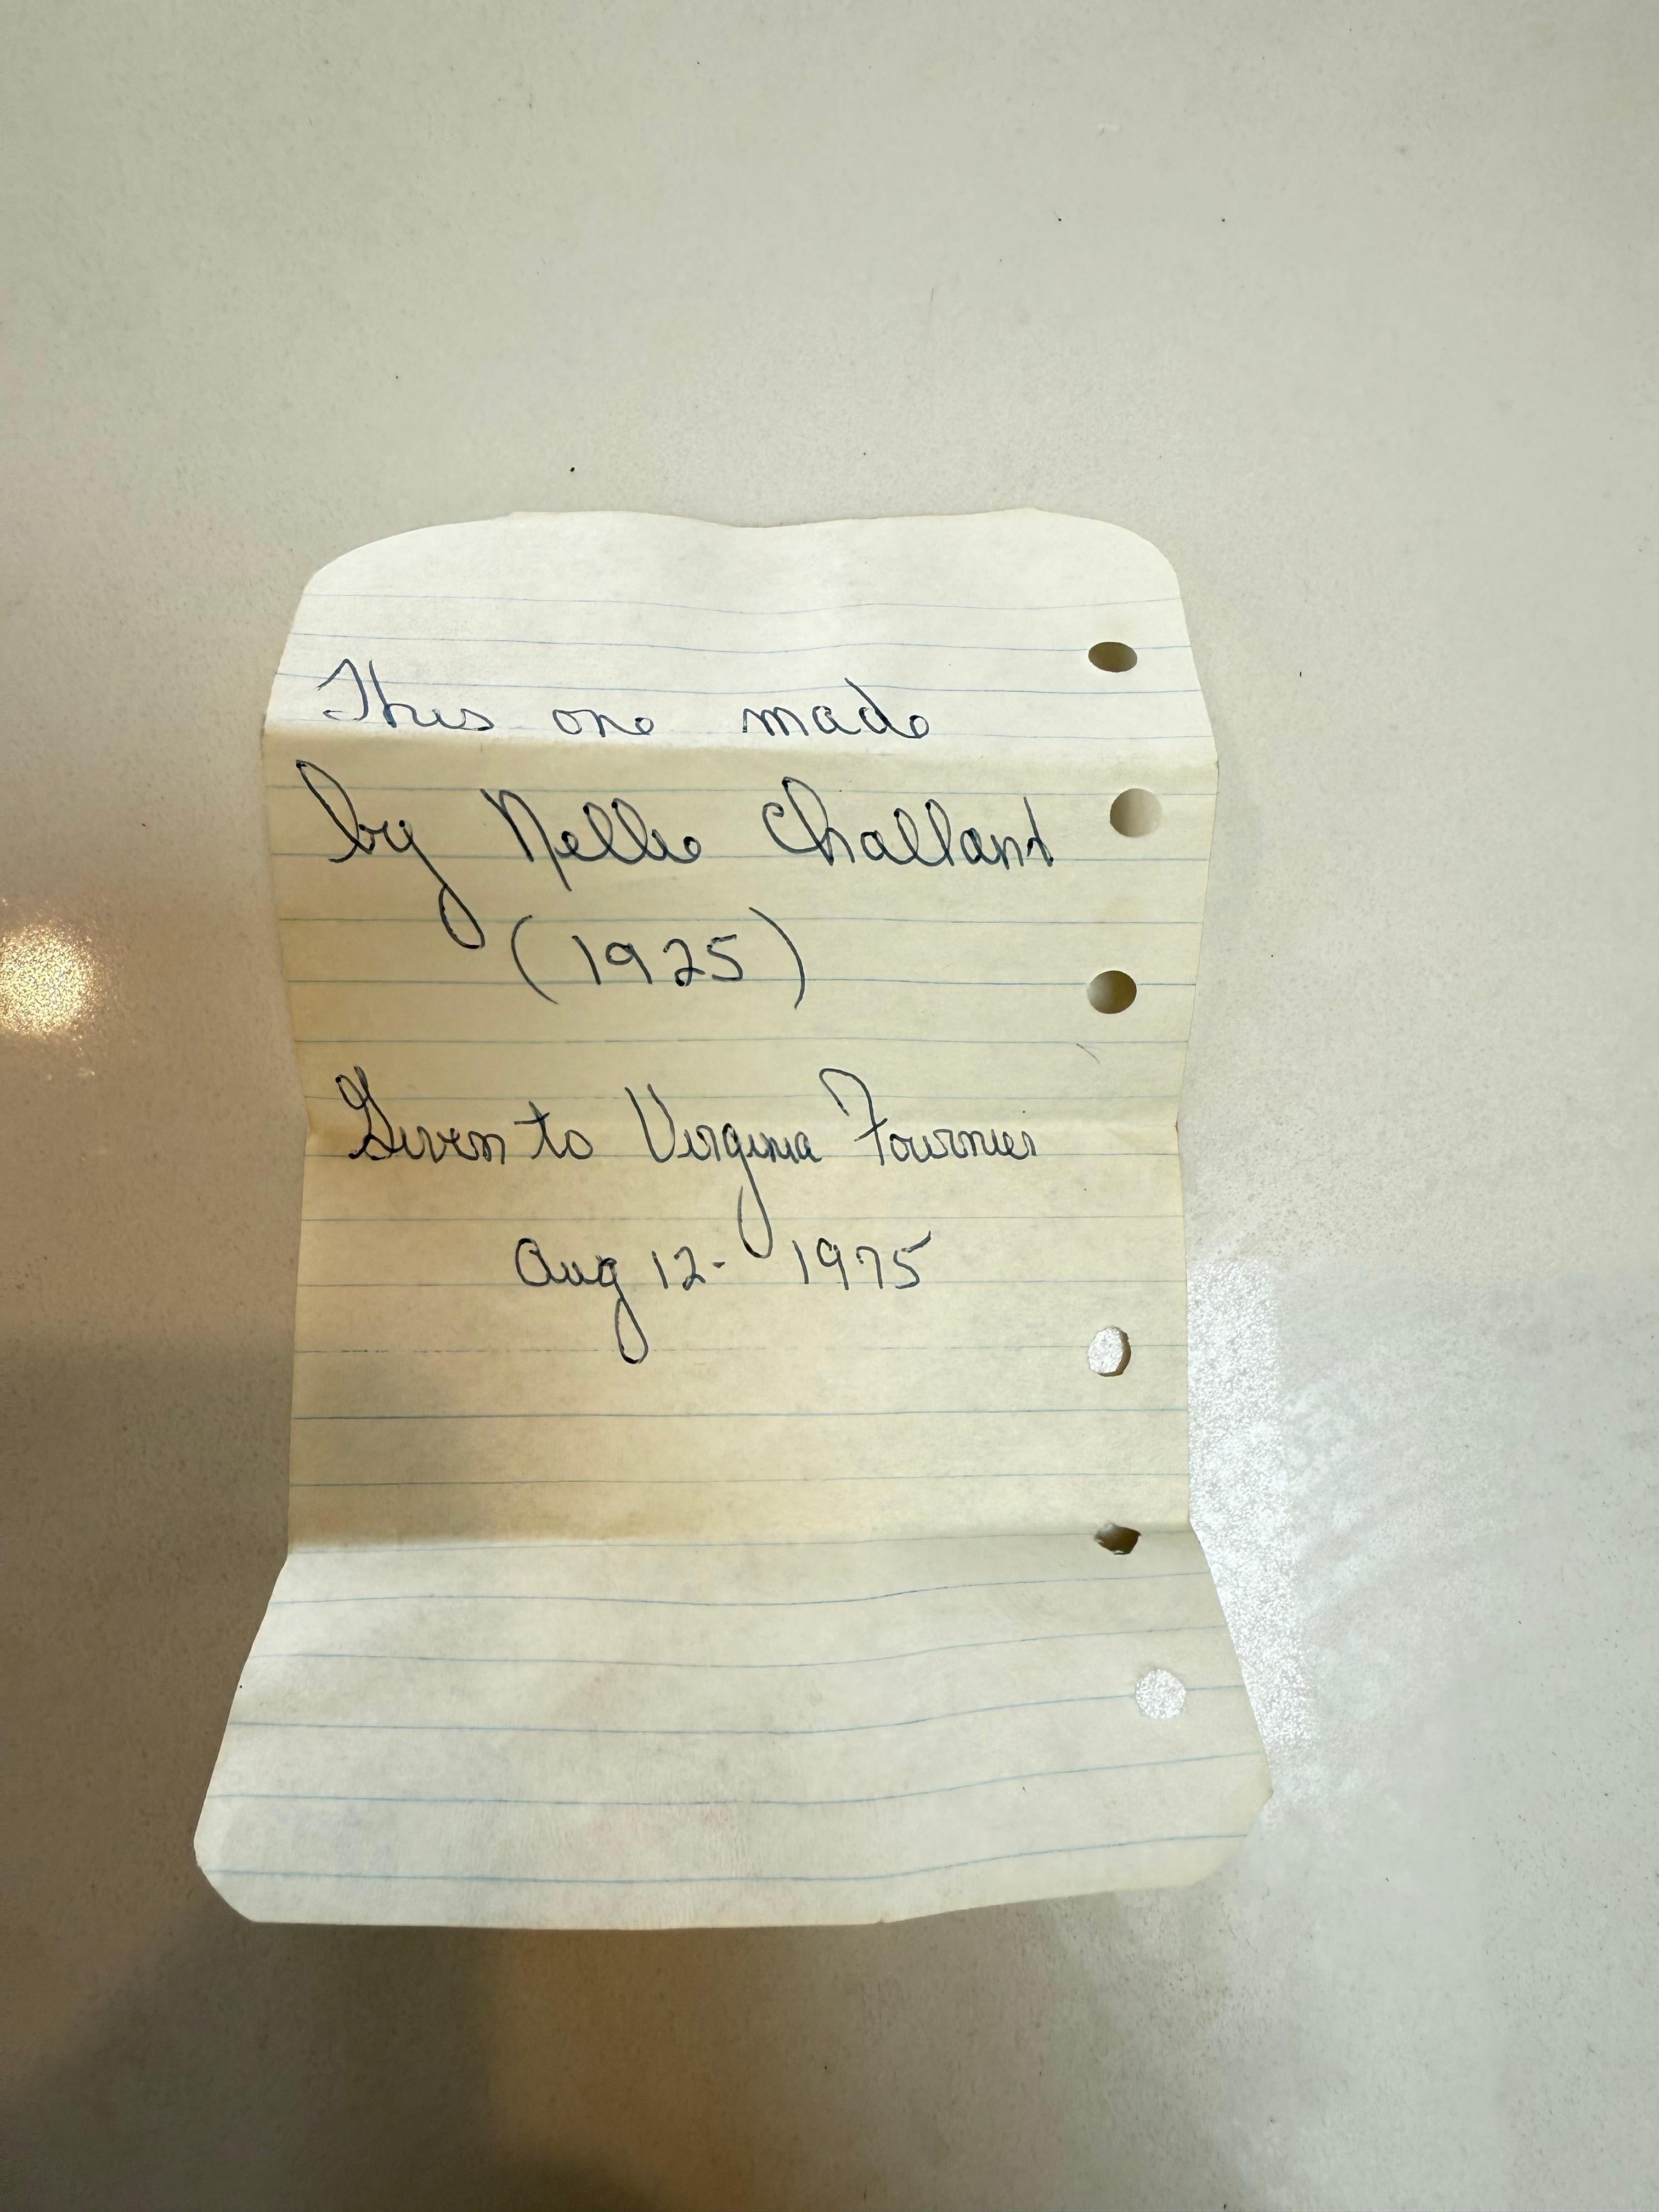 This one made
by Nellie Challand
(1925)
Given to Virginia Fournier
Aug 12- 1975